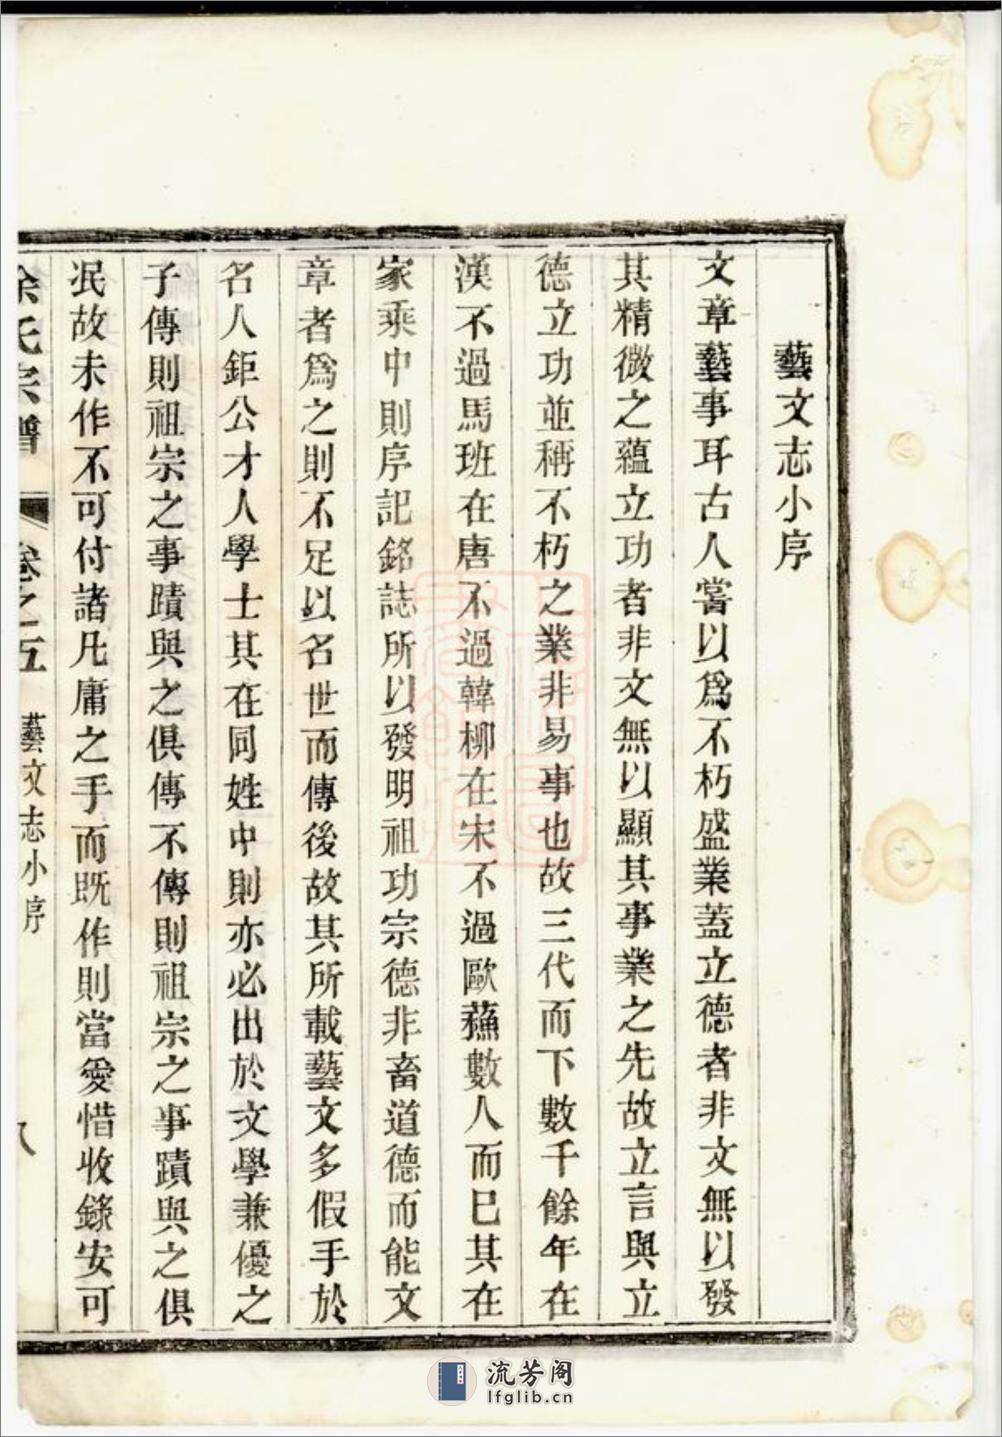 藝文志小序
文章藝事耳古人嘗以爲不朽盛業蓋立德者非文無以發
其精微之蘊立功者非文無以顯其事業之先故立言與立
德立功並稱不朽之業非易事也故三代而下數千餘年在
漢不過馬班在唐不過韓柳在宋不過歐蘓數人而已其在
家乘中則序記銘誌所以發明祖功宗德非畜道德而能文
章者爲之則不足以名世而傳後故其所載藝文多假手於
名人鉅公才人學士其在同姓中則亦必出於文學兼優之
子傳則祖宗之事蹟與之俱傳不傳則祖宗之事蹟與之俱
泯故未作不可付諸凡庸之手而既作則當愛惜收錄安可
余氏宗譜
卷之五
藝文志小序
八
流芳阁
lfglib.cn